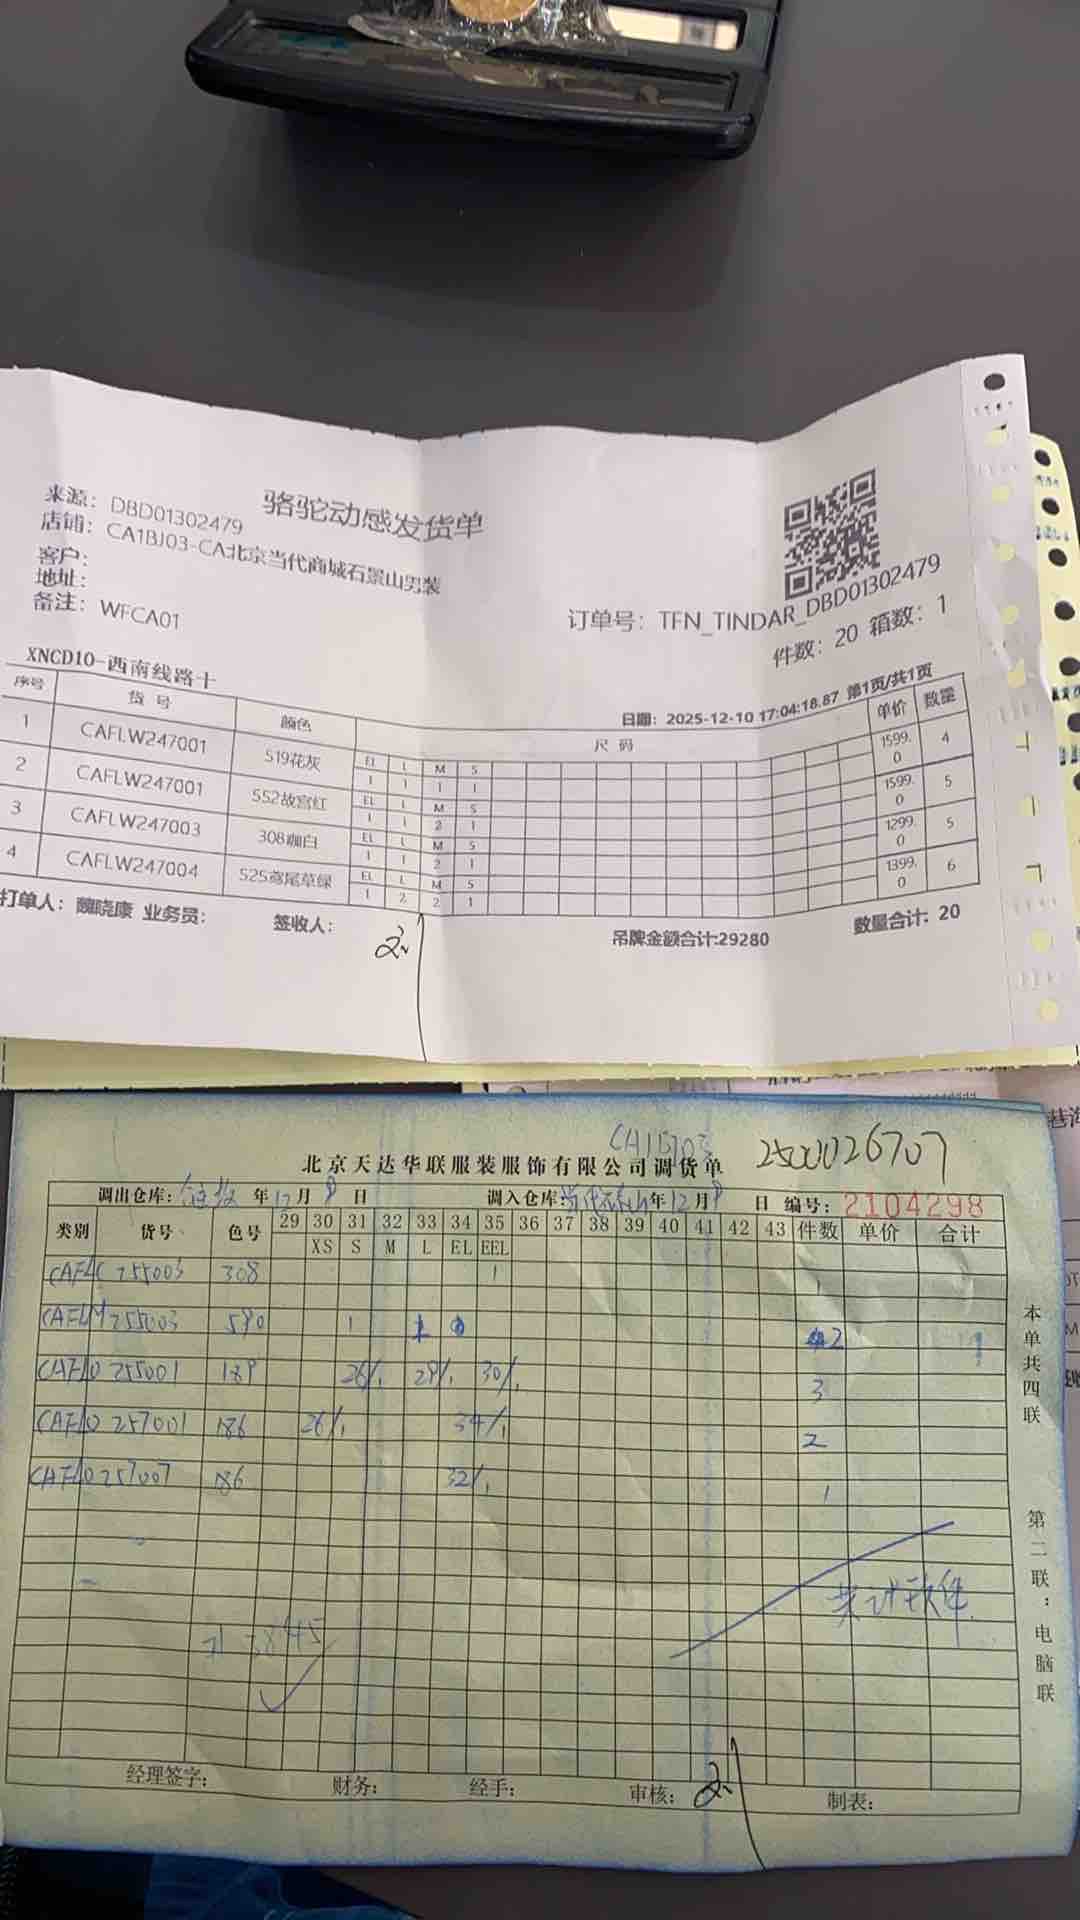 骆驼动感发货单
来源: DBD01302479
店铺: CA1BJ03-CA北京当代商城石景山男装
客户:
地址:
备注: WFCA01
订单号: TFN_TINDAR_DBD01302479
件数: 20 箱数: 1
XNCD10-西南线路十
日期: 2025-12-10 17:04:18.87 第1页/共1页
序号 货号 颜色 尺码 单价 数量
1 CAFLW247001 519花灰 EL L M S 1599.0 4
1 1 1 1
2 CAFLW247001 552故宫红 EL L M S 1599.0 5
1 1 2 1
3 CAFLW247003 308咖白 EL L M S 1299.0 5
1 1 2 1
4 CAFLW247004 525鸢尾草绿 EL L M S 1399.0 6
1 2 2 1
打单人: 魏晓康 业务员: 签收人: 吊牌金额合计:29280 数量合计: 20
CA1BJ03
北京天达华联服装服饰有限公司调货单 2500026707
调出仓库: 年 12 月 8 日 调入仓库: 年 12 月 8 日 编号: 2104298
类别 货号 色号 29 30 31 32 33 34 35 36 37 38 39 40 41 42 43 件数 单价 合计
XS S M L EL EEL
255003 308 1 1
255003 590 1 1 2
CAFLO 255001 189 26/1 29/1 30/1 3
CAFLO 257001 186 26/1 34/1 2
CAFLO 257007 186 32/1 1
共计玖件
本单共四联
第二联:电脑联
经理签字: 财务: 经手: 审核: 制表: